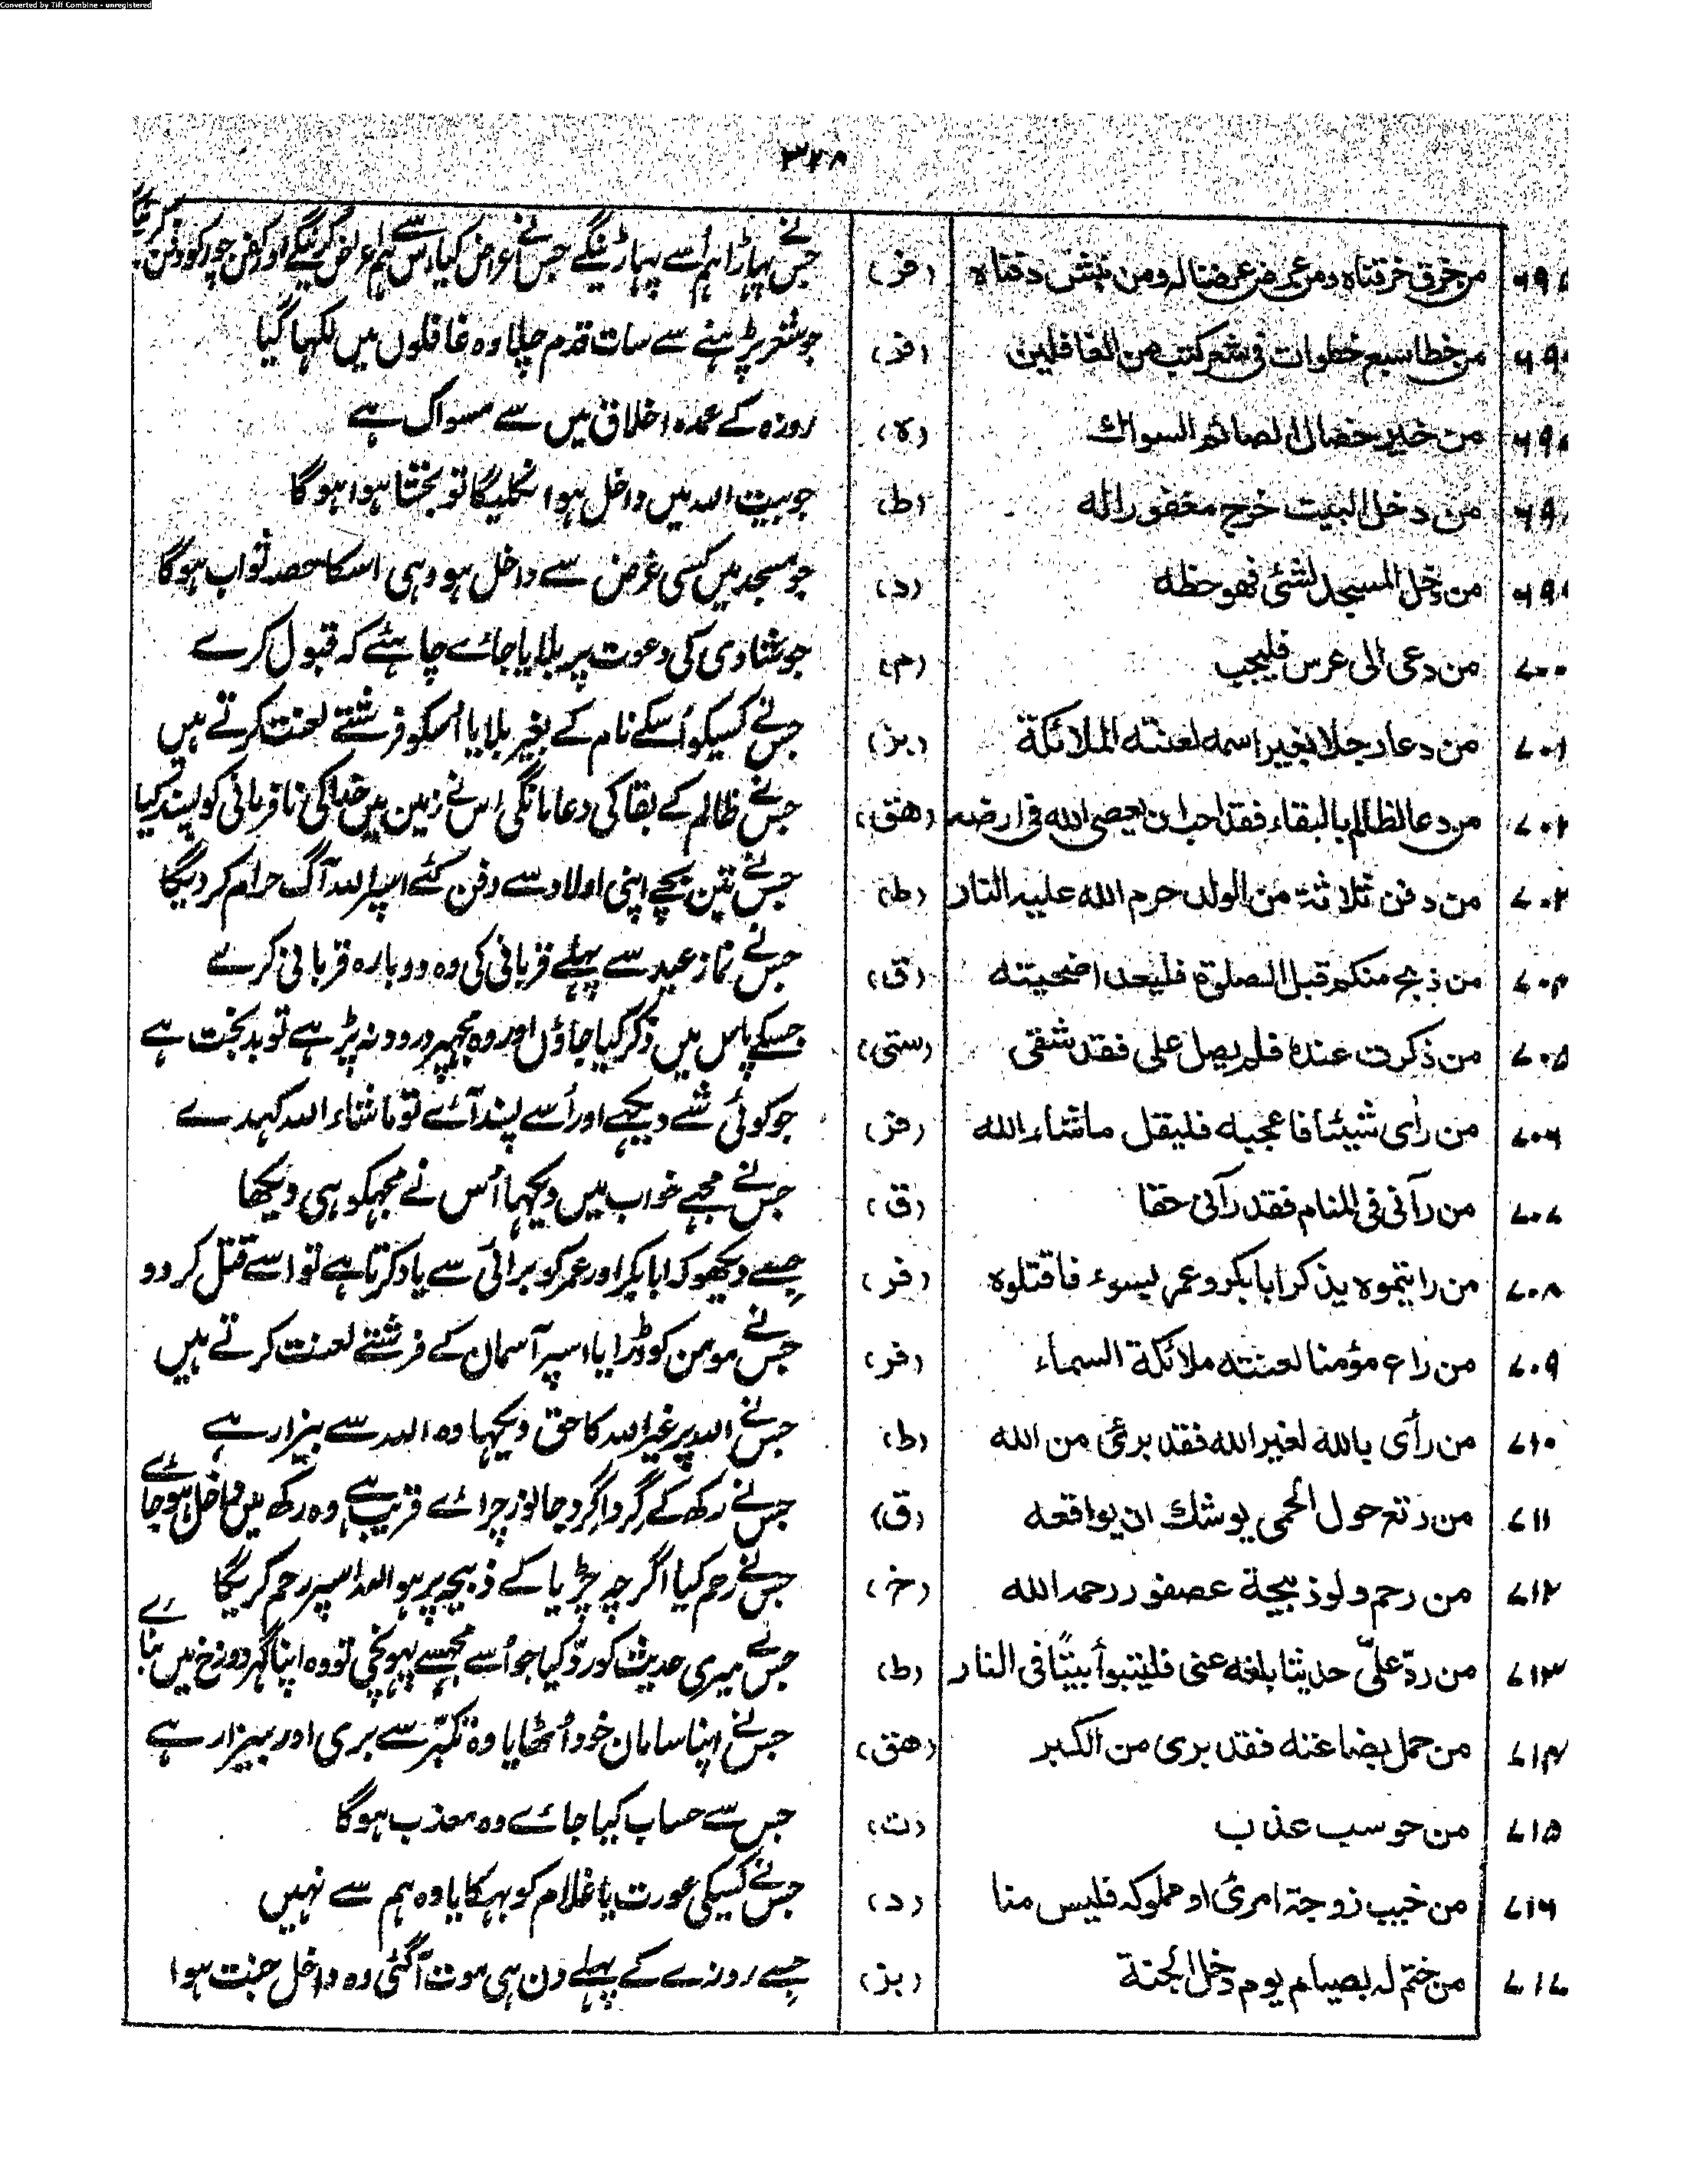 Converted by Tiff Combine - unregistered
۳۲۸
من خرق خرقناه ومن عرض عرضنا له ومن نبش دفناه (فر) جس نے پہاڑا ہم اُسے پہاڑینگے جس نے اعراض کیا اس سے ہم اعراض کرینگے اور کفن چور کو دفن
من خطا سبع خطوات فی شعر کتب من الغافلین (فر) جو شعر پڑہنے سے سات قدم چلا وہ غافلوں میں لکہا گیا
من خیر خصال الصائم السواك (ه) روزہ کے عمدہ اخلاق میں سے مسواک ہے
من دخل البیت خرج مغفورا له (ط) جو بیت اللہ میں داخل ہوا نکلیگا تو بخشا ہوا ہوگا
من دخل المسجد لشئی فهو حظه (د) جو مسجد میں کسی غرض سے داخل ہو وہی اسکا حصہ ثواب ہوگا
۷۰۰ من دعی الی عرس فلیجب (م) جو شادی کی دعوت پر بلایا جائے چاہئے کہ قبول کرے
۷۰۱ من دعا رجلا بغیر اسمه لعنته الملائکة (بز) جس نے کسیکو اُسکے نام کے بغیر بلایا اُسکو فرشتے لعنت کرتے ہیں
۷۰۲ من دعا لظالم بالبقاء فقد احب ان یعصی الله فی ارضه (هق) جس نے ظالم کے بقا کی دعا مانگی اس نے زمین میں خدا کی نافرمانی کو پسند کیا
۷۰۳ من دفن ثلاثة من الولد حرم الله علیه النار (ط) جس نے تین بچے اپنی اولاد سے دفن کئے اسپر اللہ آگ حرام کر دیگا
۷۰۴ من ذبح منکم قبل الصلوة فلیعد اضحیته (ق) جس نے نماز عید سے پہلے قربانی کی وہ دوبارہ قربانی کرے
۷۰۵ من ذکرت عنده فلم یصل علی فقد شقی (سنی) جسکے پاس میں ذکر کیا جاؤں اور وہ مجہپر درود نہ پڑہے تو بدبخت ہے
۷۰۶ من رأی شیئا فاعجبه فلیقل ماشاء الله (فر) جو کوئی شے دیکہے اور اُسے پسند آئے تو ماشاء اللہ کہدے
۷۰۷ من رآنی فی المنام فقد رآنی حقا (ق) جس نے مجہے خواب میں دیکہا اُس نے مجہکو ہی دیکھا
۷۰۸ من رایتموه یذکر ابابکر وعمر بسوء فاقتلوه (فر) جسے دیکھو کہ ابا بکر اور عمر کو برائی سے یاد کرتا ہے تو اسے قتل کر دو
۷۰۹ من راع مؤمنا لعنته ملائکة السماء (فر) جس نے مومن کو ڈرایا اسپر آسمان کے فرشتے لعنت کرتے ہیں
۷۱۰ من رأی بالله لغیر الله فقد برئ من الله (ط) جس نے اللہ پر غیر اللہ کا حق دیکہا وہ اللہ سے بیزار ہے
۷۱۱ من رتع حول الحمی یوشك ان یواقعه (ق) جس نے رکھ کے گرداگرد جانور چرائے قریب ہے وہ رکھ میں داخل ہو جائے
۷۱۲ من رحم ولو ذبیحة عصفور رحمه الله (خ) جس نے رحم کیا اگرچہ چڑیا کے ذبیحہ پر ہو اللہ اسپر رحم کریگا
۷۱۳ من ردّ علیّ حدیثا بلغه عنی فلیتبوأ بیتًا فی النار (ط) جس نے میری حدیث کو ردّ کیا جو اُسے مجہسے پہونچی تو وہ اپنا گہر دوزخ میں بنائے
۷۱۴ من حمل بضاعته فقد بری من الکبر (هق) جس نے اپنا سامان خود اُٹھایا وہ تکبّر سے بری اور بیزار ہے
۷۱۵ من حوسب عذب (ت) جس سے حساب کیا جائے وہ معذب ہوگا
۷۱۶ من خبب زوجة امرئ او مملوکه فلیس منا (د) جس نے کسیکی عورت یا غلام کو بہکایا وہ ہم سے نہیں
۷۱۷ من ختم له بصیام یوم دخل الجنة (بز) جسے روزے کے پہلے دن ہی موت آگئی وہ داخل جنت ہوا